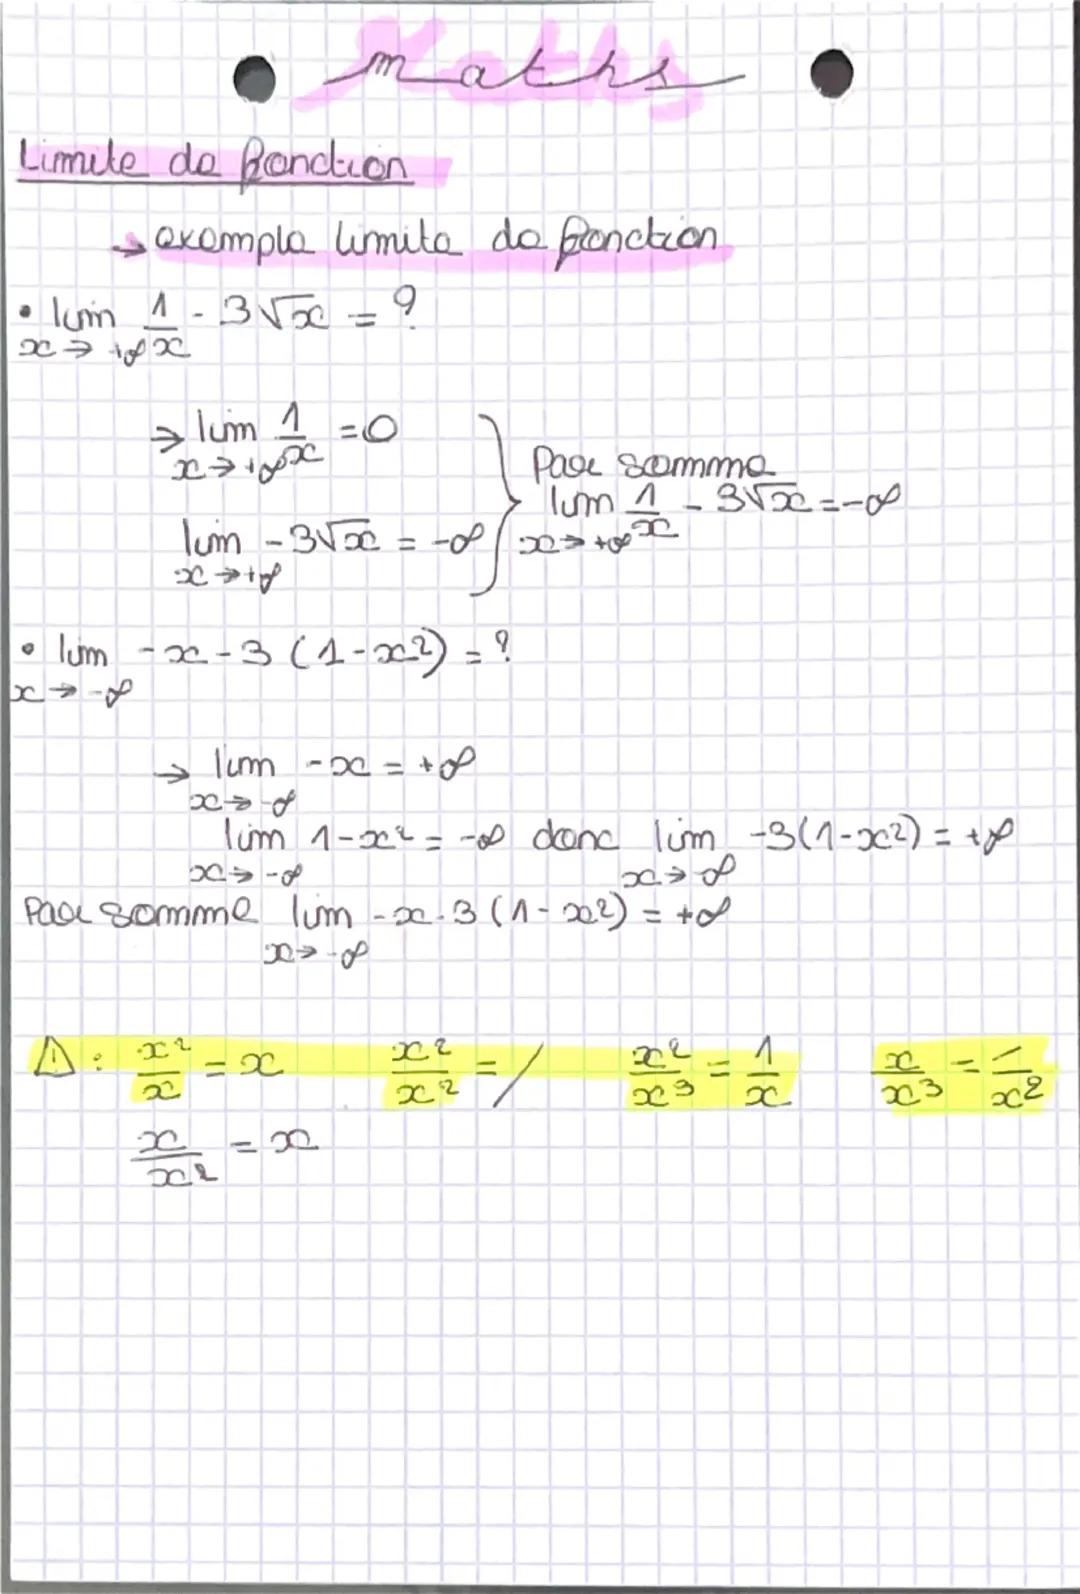 Maths
Limite de fonction
→ exemple limite de fonction
• lim 1/x - 3√x = ?
x → +∞
→ lim 1/x = 0
x → +∞
lim -3√x = -∞
x → +∞
Par somme
lim 1/x - 3√x = -∞
x → +∞
• lim -x - 3 (1-x²) = ?
x → -∞
→ lim -x = +∞
x → -∞
lim 1-x² = -∞ donc lim -3(1-x²) = +∞
x → -∞ x → ∞
Par somme lim -x - 3 (1-x²) = +∞
x → -∞
⚠ : x²/x = x x²/x² = / x²/x³ = 1/x x/x³ = 1/x²
x/x² = x